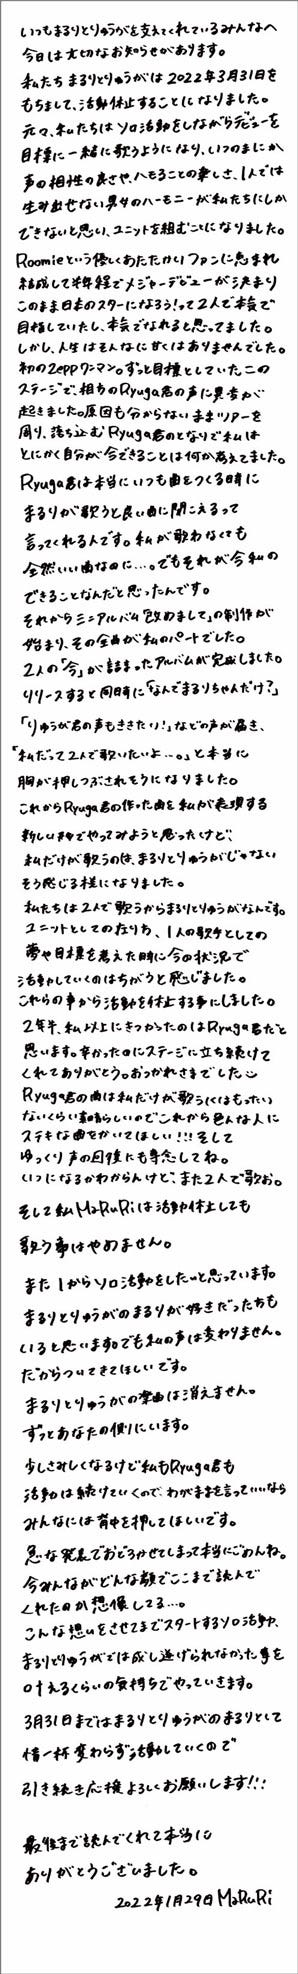 いつもまるりとりゅうがを支えてくれているみんなへ
今日は大切なお知らせがあります。
私たち まるりとりゅうがは 2022年3月31日を
もちまして、活動休止することになりました。
元々、私たちは ソロ活動をしながらデビューを
目標に一緒に歌うようになり、いつのまにか
声の相性の良さや、ハモることの楽しさ、1人では
生み出せない男女のハーモニーが私たちにしか
できないと思い、ユニットを組むことになりました。
Roomieという優しくあたたかいファンに恵まれ
結成して半年程でメジャーデビューが決まり
このまま日本のスターになろう!って2人で本気で
目指していたし、本気でなれると思ってました。
しかし、人生はそんなに甘くはありませんでした。
初のZeppワンマン。ずっと目標としていたこの
ステージで、相方のRyuga君の声に異常が
起きました。原因も分からないままツアーを
周り、落ち込むRyuga君のとなりで私は
とにかく自分が今できることは何か考えてました。
Ryuga君は本当にいつも曲をつくる時に
まるりが歌うと良い曲に聞こえるって
言ってくれる人です。私が歌わなくても
全然いい曲なのに…。でもそれが今私の
できることなんだと思ったんです。
それからミニアルバム「改めまして」の制作が
始まり、その全曲が私のパートでした。
2人の「今」が詰まったアルバムが完成しました。
リリースすると同時に「なんでまるりちゃんだけ?」
「りゅうが君の声もききたい!」などの声が届き、
「私だって2人で歌いたいよ…。」と本当に
胸が押しつぶされそうになりました。
これからRyuga君の作った曲を私が表現する
新しい形でやってみようと思ったけど、
私だけが歌うのは、まるりとりゅうがじゃない
そう感じる様になりました。
私たちは2人で歌うからまるりとりゅうがなんです。
ユニットとしての在り方、1人の歌手としての
夢や目標を考えた時に今の状況で
活動していくのはちがうと感じました。
これらの事から活動を休止する事にしました。
2年半、私以上にきつかったのはRyuga君だと
思います。辛かったのにステージに立ち続けて
くれてありがとう。おつかれさまでした
Ryuga君の曲は私だけが歌うにはもったい
ないくらい素晴らしいのでこれから色んな人に
ステキな曲をかいてほしい!!!そして
ゆっくり声の回復にも専念してね。
いつになるかわからんけど、また2人で歌お。
そして私MaRuRiは活動休止しても
歌う事はやめません。
また1からソロ活動をしたいと思っています。
まるりとりゅうがのまるりが好きだった方も
いると思います。でも私の声は変わりません。
だからついてきてほしいです。
まるりとりゅうがの楽曲は消えません。
ずっとあなたの側にいます。
少しさみしくなるけど私もRyuga君も
活動は続けていくので、わがままを言っていいなら
みんなには背中を押してほしいです。
急な発表でおどろかせてしまって本当にごめんね。
今みんながどんな顔でここまで読んで
くれたのか想像してる…。
こんな想いをさせてまでスタートするソロ活動、
まるりとりゅうがでは成し遂げられなかった事を
叶えるくらいの気持ちでやっていきます。
3月31日まではまるりとりゅうがのまるりとして
精一杯変わらず活動していくので
引き続き応援よろしくお願いします!!!
最後まで読んでくれて本当に
ありがとうございました。
2022年1月29日 MaRuRi